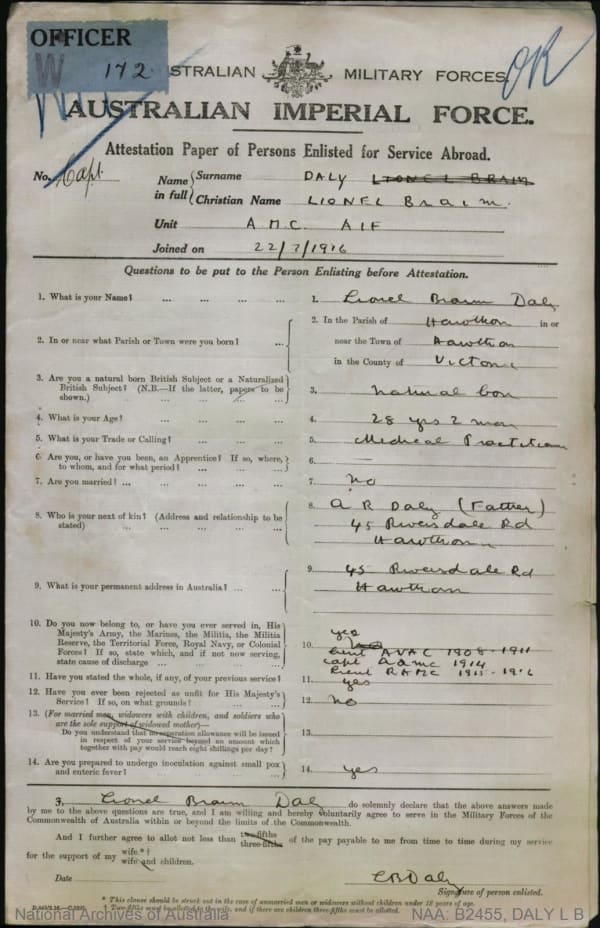 OFFICER
W 172
OR
AUSTRALIAN MILITARY FORCES.
AUSTRALIAN IMPERIAL FORCE.
Attestation Paper of Persons Enlisted for Service Abroad.
No. Capt.
Name in full { Surname DALY LIONEL BRAIM
Christian Name LIONEL Braim.
Unit A.M.C. AIF
Joined on 22/7/1916
Questions to be put to the Person Enlisting before Attestation.
1. What is your Name? ... ... ... ... 1. Lionel Braim Daly
2. In or near what Parish or Town were you born? ... 2. In the Parish of Hawthorn in or
near the Town of Hawthorn
in the County of Victoria
3. Are you a natural born British Subject or a Naturalized
British Subject? (N.B.—If the latter, papers to be
shown.) ... ... ... ... 3. natural born
4. What is your Age? ... ... ... 4. 28 yrs 2 mon
5. What is your Trade or Calling? ... ... ... 5. Medical Practitioner
6. Are you, or have you been, an Apprentice? If so, where,
to whom, and for what period? ... ... ... 6. —
7. Are you married? ... ... ... ... ... 7. no
8. Who is your next of kin? (Address and relationship to be
stated) ... ... ... ... ... 8. A R Daly (Father)
45 Riversdale Rd
Hawthorn
9. What is your permanent address in Australia? ... ... 9. 45 Riversdale Rd
Hawthorn
10. Do you now belong to, or have you ever served in, His
Majesty's Army, the Marines, the Militia, the Militia
Reserve, the Territorial Force, Royal Navy, or Colonial
Forces? If so, state which, and if not now serving,
state cause of discharge ... ... ... 10. yes
Lieut 1908-1911
Capt AAMC 1914
Lieut RAMC 1915-1916
11. Have you stated the whole, if any, of your previous service? 11. yes
12. Have you ever been rejected as unfit for His Majesty's
Service? If so, on what grounds? ... ... 12. no
13. (For married men, widowers with children, and soldiers who
are the sole support of widowed mother)—
Do you understand that no separation allowance will be issued
in respect of your service beyond an amount which
together with pay would reach eight shillings per day? 13.
14. Are you prepared to undergo inoculation against small pox
and enteric fever? ... ... ... ... 14. yes
I, Lionel Braim Daly do solemnly declare that the above answers made
by me to the above questions are true, and I am willing and hereby voluntarily agree to serve in the Military Forces of the
Commonwealth of Australia within or beyond the limits of the Commonwealth.
And I further agree to allot not less than two-fifths three-fifths of the pay payable to me from time to time during my service
for the support of my wife.*† wife and children.
Date LBDaly
Signature of person enlisted.
* This clause should be struck out in the case of unmarried men or widowers without children under 18 years of age.
† Two-fifths must be allotted to the wife, and if there are children three-fifths must be allotted.
National Archives of Australia NAA: B2455, DALY L B